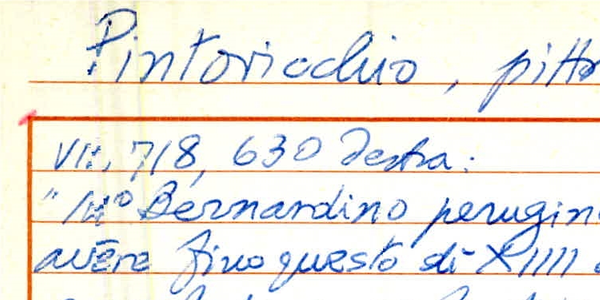 Pintoricchio, pitto
VII, 718, 630 destra:
"Mº Bernardino perugin
avere fino questo dì XIIII